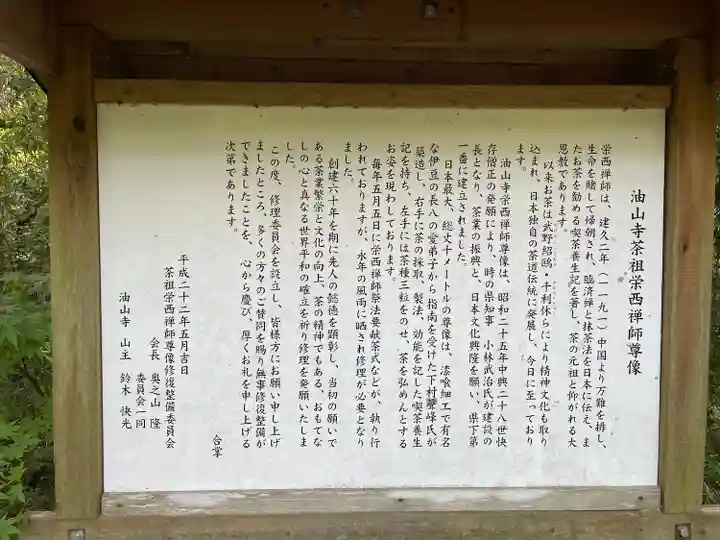 油山寺茶祖栄西禅師尊像
栄西禅師は、建久二年（一一九一）中国より万難を排し、
生命を賭して帰朝され、臨済禅と抹茶法を日本に伝え、ま
たお茶を勧める喫茶養生記を著し、茶の元祖と仰がれる大
恩教であります。
以来お茶は武野紹鴎、千利休らにより精神文化も取り
込まれ、日本独自の茶道伝統に発展し、今日に至っており
ます。
油山寺栄西禅師尊像は、昭和二十五年中興二十八世快
存僧正の発願により、時の県知事 小林武治氏が建設の
長となり、茶業の振興と、日本文化興隆を願い、県下第
一番に建立されました。
日本最大、総丈十メートルの尊像は、漆喰細工で有名
な伊豆の長八の愛弟子から指南を受けた下村 峰氏が
築造し、右手に茶の採取、製法、効能を記した喫茶養生
記を持ち、左手には茶種三粒をのせ、茶を弘めんとする
お姿を現わしております。
毎年五月五日に栄西禅師祭法要献茶式などが、執り行
われておりますが、永年の風雨に晒され修理が必要となり
ました。
創建六十年を期に先人の懿徳を顕彰し、当初の願いで
ある茶業繁栄と文化の向上、茶の精神でもある、おもてな
しの心と真なる世界平和の確立を祈り修理を発願いたしま
した。
この度、修理委員会を設立し、皆様方にお願い申し上げ
ましたところ、多くの方々のご賛同を賜り無事修復整備が
できましたことを、心から慶び、厚くお礼を申し上げる
次第であります。
合掌
平成二十二年五月吉日
茶祖栄西禅師尊像修復整備委員会
会長 奥之山 隆
委員会一同
油山寺 山主 鈴木 快光